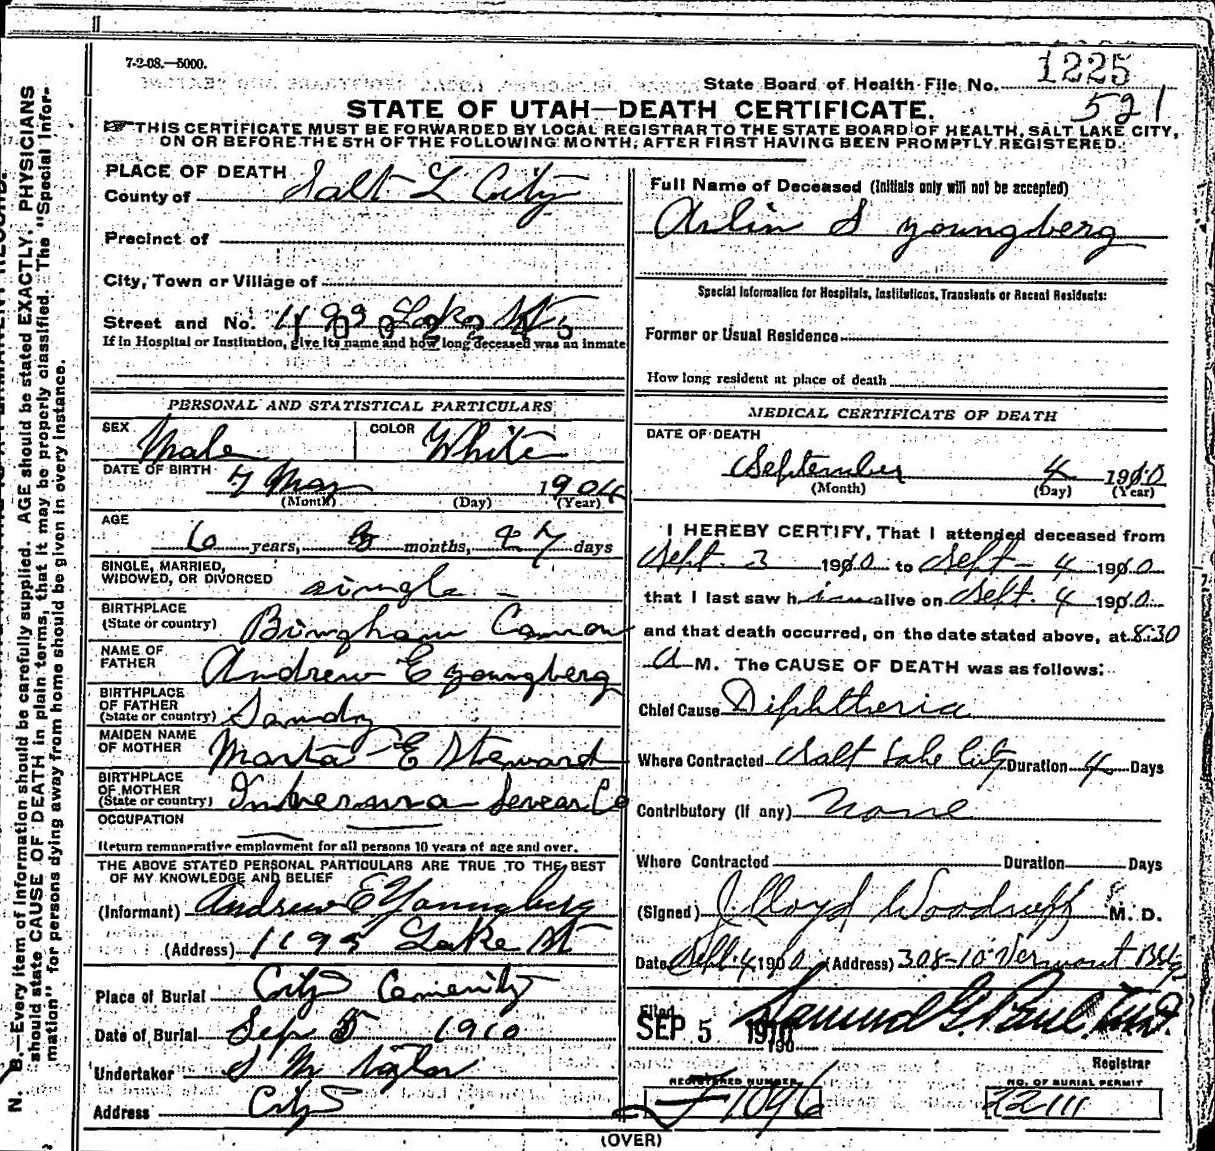 7-2-08.—5000.
State Board of Health File No. 1225
521
STATE OF UTAH—DEATH CERTIFICATE.
☞THIS CERTIFICATE MUST BE FORWARDED BY LOCAL REGISTRAR TO THE STATE BOARD OF HEALTH, SALT LAKE CITY,
ON OR BEFORE THE 5TH OF THE FOLLOWING MONTH, AFTER FIRST HAVING BEEN PROMPTLY REGISTERED.
PLACE OF DEATH
County of Salt L City
Precinct of
City, Town or Village of
Street and No. Lake St
If in Hospital or Institution, give its name and how long deceased was an inmate
PERSONAL AND STATISTICAL PARTICULARS
SEX Male COLOR White
DATE OF BIRTH 7 May 1904
(Month) (Day) (Year)
AGE
6 years, 3 months, 27 days
SINGLE, MARRIED,
WIDOWED, OR DIVORCED single
BIRTHPLACE
(State or country) Bingham Canon
NAME OF
FATHER Andrew E Youngberg
BIRTHPLACE
OF FATHER
(State or country) Sandy
MAIDEN NAME
OF MOTHER Marta E Steward
BIRTHPLACE
OF MOTHER
(State or country) Sevear Co
OCCUPATION
Return remunerative employment for all persons 10 years of age and over.
THE ABOVE STATED PERSONAL PARTICULARS ARE TRUE TO THE BEST
OF MY KNOWLEDGE AND BELIEF
(Informant) Andrew E Youngberg
(Address) 1193 Lake St
Place of Burial City Cemenity
Date of Burial Sep 5 1910
Undertaker S M Taylor
Address City
Full Name of Deceased (Initials only will not be accepted)
Arlin S Youngberg
Special Information for Hospitals, Institutions, Transients or Recent Residents:
Former or Usual Residence
How long resident at place of death
MEDICAL CERTIFICATE OF DEATH
DATE OF DEATH
September 4 1910
(Month) (Day) (Year)
I HEREBY CERTIFY, That I attended deceased from
Sept. 3 1910 to Sept - 4 1910
that I last saw him alive on Sept. 4 1910
and that death occurred, on the date stated above, at 8:30
A M. The CAUSE OF DEATH was as follows:
Chief Cause Diphtheria
Where Contracted Salt Lake City Duration 4 Days
Contributory (if any) None
Where Contracted Duration Days
(Signed) J Lloyd Woodruff M. D.
Date Sept. 4 1910 (Address) 308-10 Vermont Bldg
Filed
SEP 5 1910 Samuel G. Paul, M.D.
190
Registrar
REGISTERED NUMBER
F1096
NO. OF BURIAL PERMIT
12111
(OVER)
N. B.—Every item of information should be carefully supplied. AGE should be stated EXACTLY. PHYSICIANS
should state CAUSE OF DEATH in plain terms, that it may be properly classified. The "Special Infor-
mation" for persons dying away from home should be given in every instance.